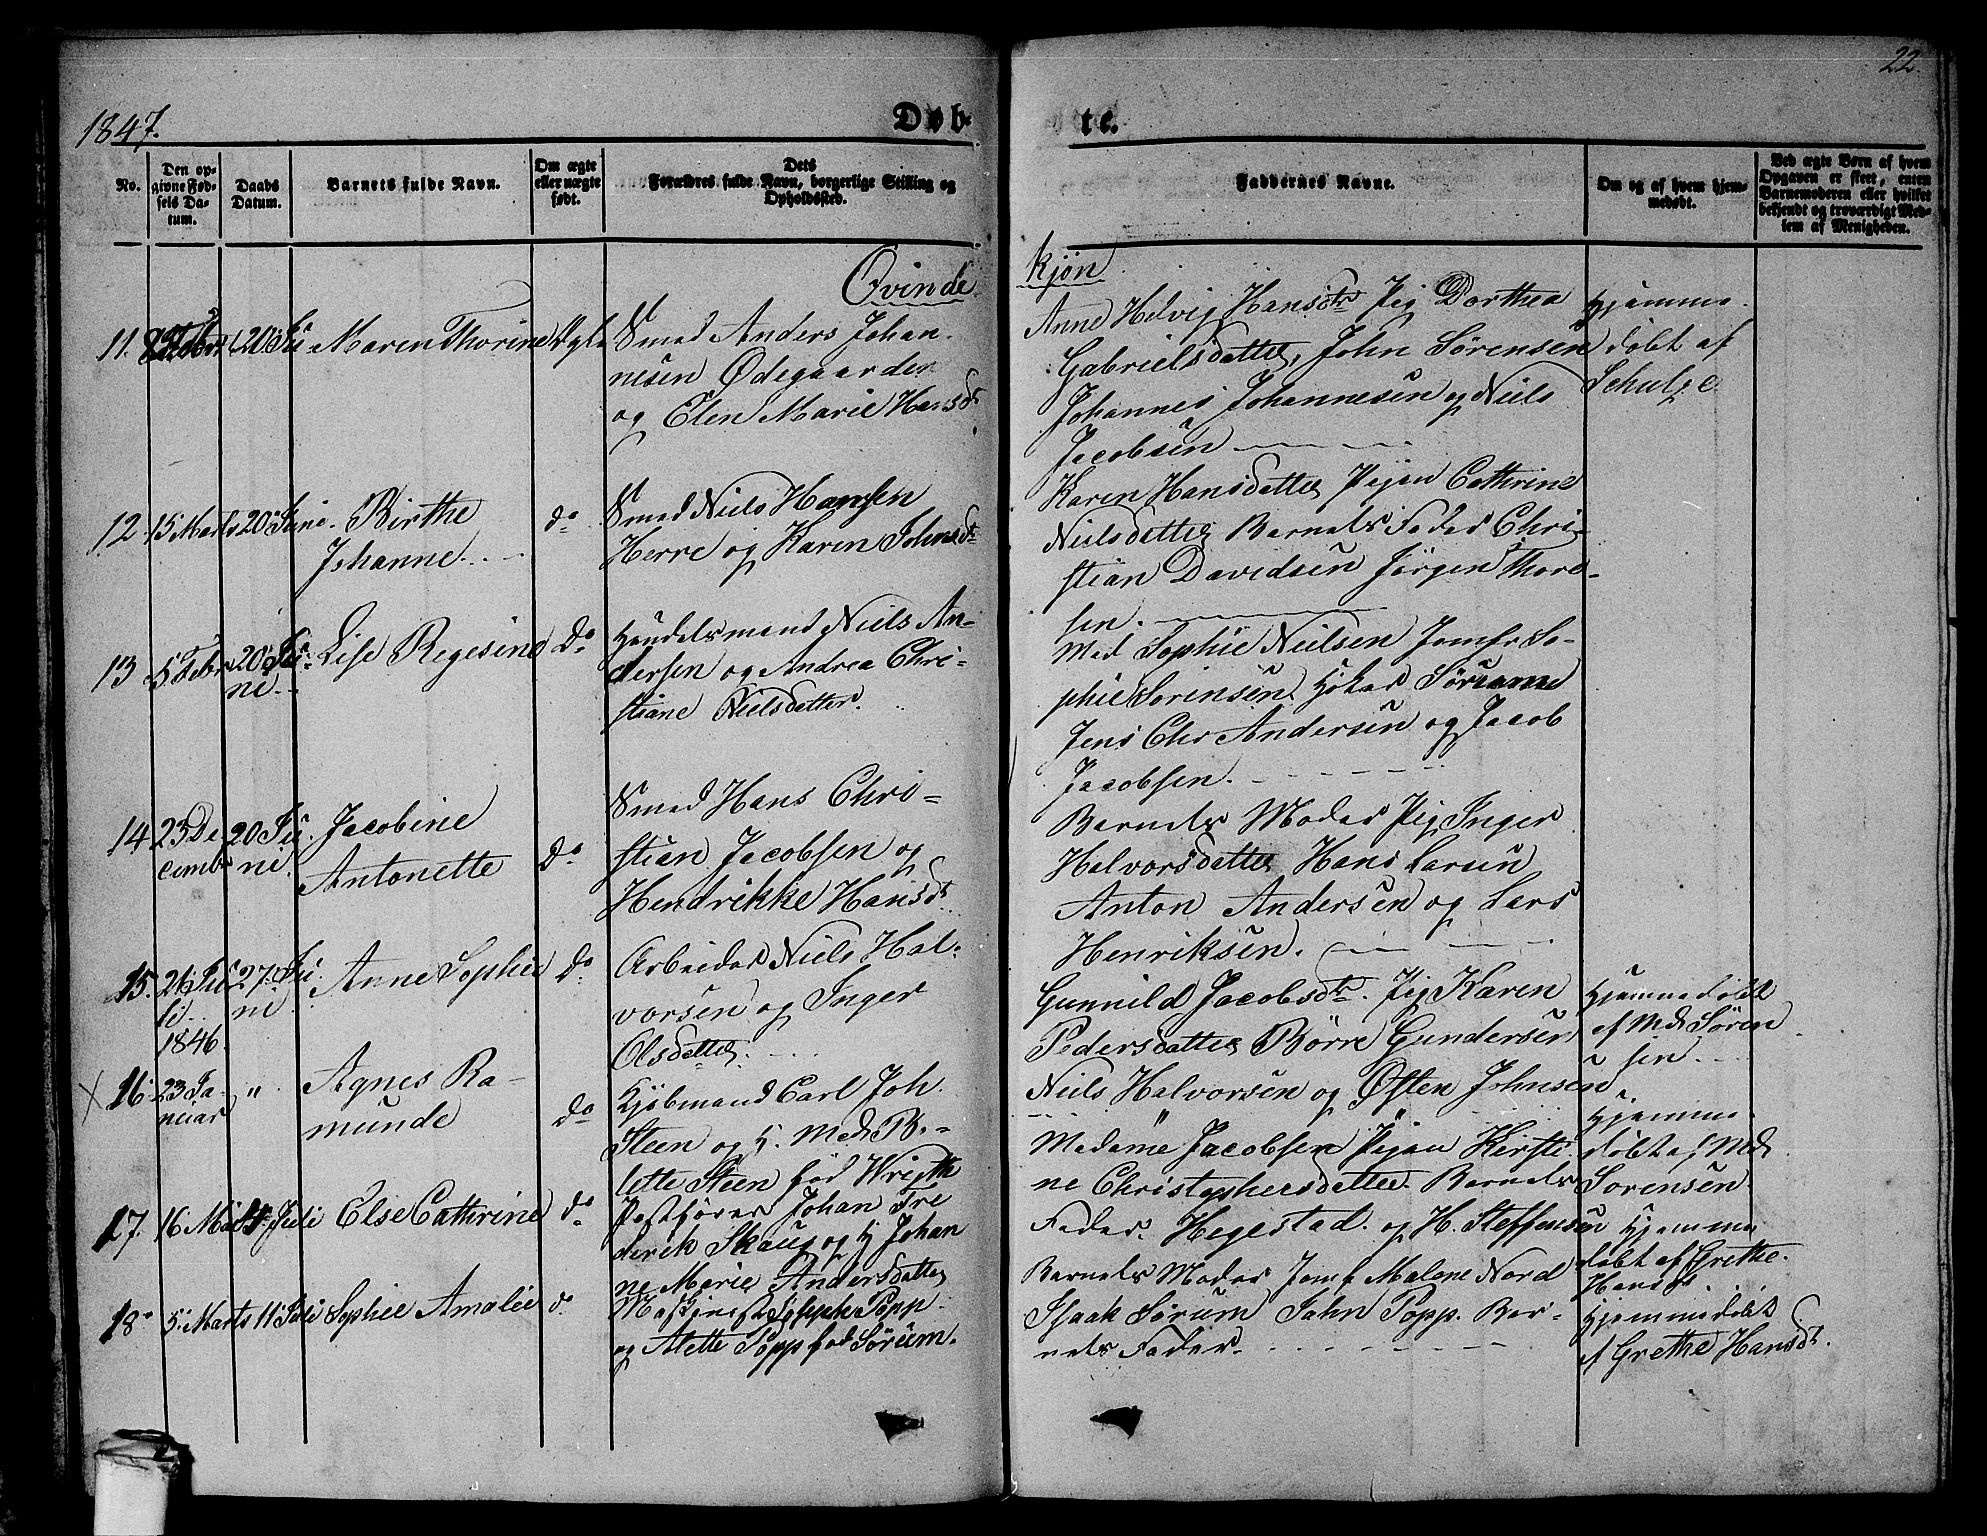 22.
1847.
Døb-
te.
No.
Den op-
givne Fød-
sels Da-
tum.
Daabs
Datum.
Barnets fulde Navn.
Om ægte
eller uægte
født.
Dets
Forældres fulde Navn, borgerlige Stilling og
Opholdssted.
Faddernes Navne.
Om og af hvem hjem-
medøbt.
Ved ægte Børn af hvem
Opgaven er skeet, enten
Barnemoderen eller hvilket
bekjendt og troværdigt Med-
lem af Menigheden.
Qvinde
kjøn
11.
20 Ju
Maren Thorine
Ægte
Smed Anders Johan-
nesen Ødegaarden
og Elen Marie Hansdt
Anne Helvig Hansdtr Pig Dorthea
Gabrielsdatter, John Sørensen
Johannes Johannesen og Niels
Jacobsen
Hjemme-
døbt af
Schulze
12.
15 Marts
20 Juni.
Birthe
Johanne
do
Smed Niels Hansen
Herre og Karen Johnsdtr
Karen Hansdatter Pigen Cathrine
Nielsdatter Barnets Fader Chri-
stian Davidsen Jørgen Thore-
sen.
13
5 Febr
20 Ju-
ni
Lise Regesine
do
Handelsmand Niels An-
dersen og Andrea Chri-
stiane Nielsdatter.
Mad Sophie Nielsen Jomfr So-
phie Sorensen. Høker
Jens Chr Andersen og Jacob
Jacobsen.
14
23 De
cembr
20 Ju-
ni.
Jacobine
Antonette
do
Smed Hans Chri-
stian Jacobsen og
Hendrikke Hansdt
Barnets Moder Pig Inger
Halvorsdatter Hans Larsen
Anton Andersen og Lars
Henriksen.
15.
21 Ju
li
1846.
27 Ju
ni
Anne Sophie
do
Arbeider Niels Hal-
vorsen og Inger
Olsdatter.
Gunnild Jacobsdtr. Pig Karen
Pedersdatter Børre Gundersen
Niels Halvorsen og Østen Johnsen
Hjemmedøbt
af Md Søren
sen
16
23 Ja-
nuar
"
Agnes Ra-
munde
do
Kjøbmand Carl Joh.
Steen og H. Mad B.-
lette Steen fød Wrigth
Madame Jacobsen Pigen Kirsti
ne Christophersdatter. Barnets
Fader. Hegestad. og H. Steffensen
Hjemme-
døbt af Md
Sorensen
17.
16 Mai
Juli
Else Cathrine
do
Postfører Johan Fre
derik Skaug og H Johan
ne Marie Andersdatter
Barnets Moder Jomf Malene Nord
Hjemme
døbt af Grethe
Hansdt
18
5 Marts
11 Juli
Sophie Amalie
do
Maskinist Joseph Popp
og Alette Popp fød Sørum.
Isaak Sørum John Popp. Bar-
nets Fader.
Hjemmedøbt
af Grethe Hansdt.